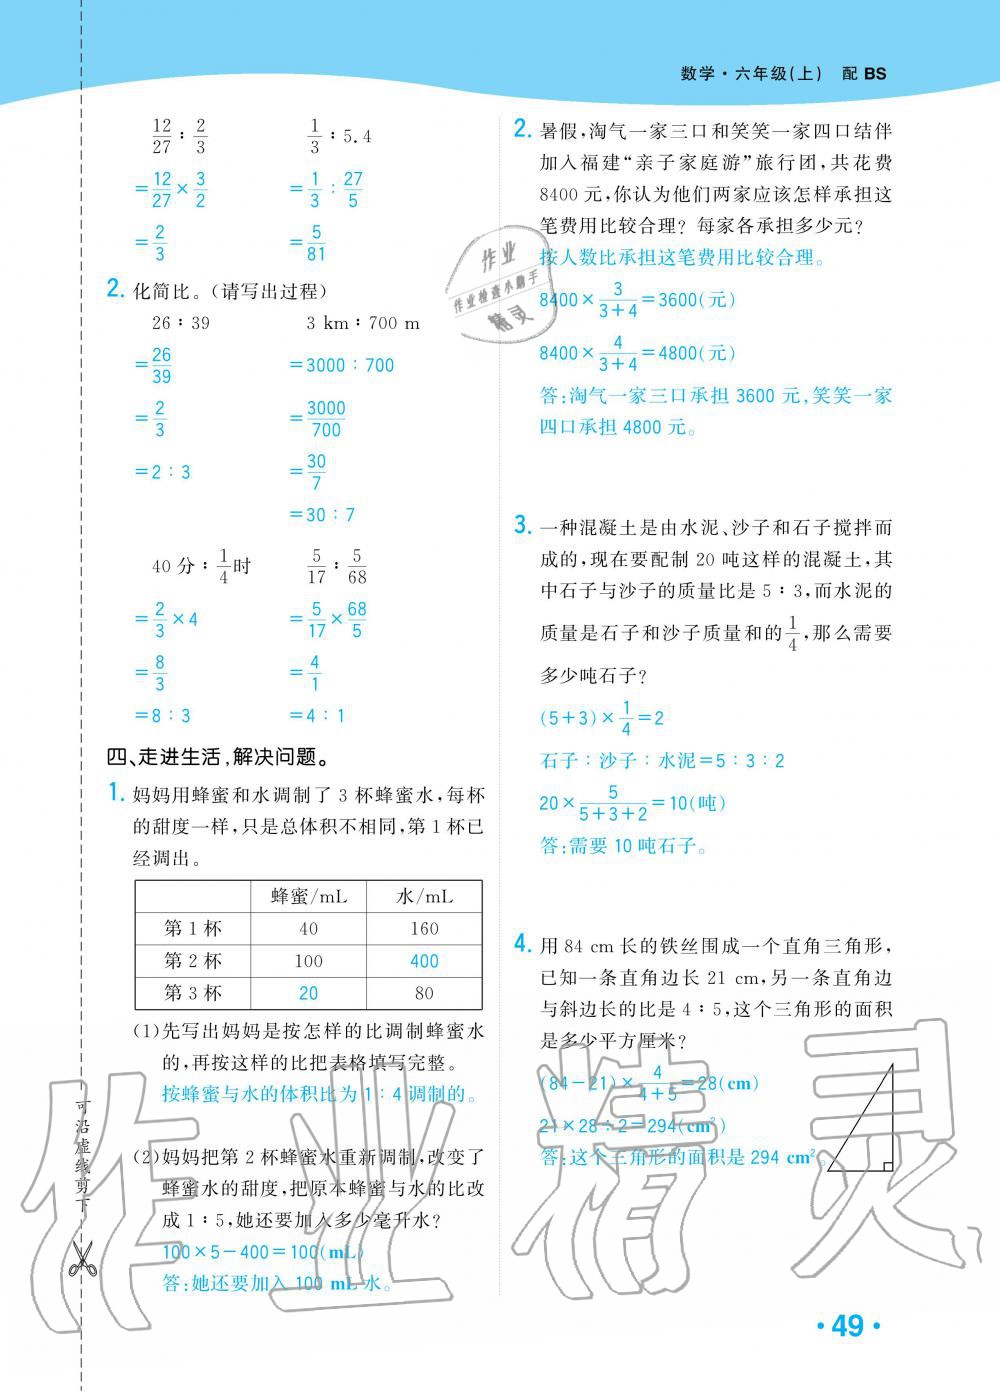 数学·六年级(上) 配 BS
12/27∶2/3 1/3∶5.4
=12/27×3/2 =1/3∶27/5
=2/3 =5/81
2. 化简比。(请写出过程)
26∶39 3 km∶700 m
=26/39 =3000∶700
=2/3 =3000/700
=2∶3 =30/7
=30∶7
40 分∶1/4时 5/17∶5/68
=2/3×4 =5/17×68/5
=8/3 =4/1
=8∶3 =4∶1
四、走进生活,解决问题。
1. 妈妈用蜂蜜和水调制了 3 杯蜂蜜水,每杯
的甜度一样,只是总体积不相同,第 1 杯已
经调出。
蜂蜜/mL 水/mL
第 1 杯 40 160
第 2 杯 100 400
第 3 杯 20 80
(1)先写出妈妈是按怎样的比调制蜂蜜水
的,再按这样的比把表格填写完整。
按蜂蜜与水的体积比为 1∶4 调制的。
(2)妈妈把第 2 杯蜂蜜水重新调制,改变了
蜂蜜水的甜度,把原本蜂蜜与水的比改
成 1∶5,她还要加入多少毫升水?
100×5-400=100(mL)
答:她还要加入 100 mL 水。
2. 暑假,淘气一家三口和笑笑一家四口结伴
加入福建“亲子家庭游”旅行团,共花费
8400 元,你认为他们两家应该怎样承担这
笔费用比较合理? 每家各承担多少元?
按人数比承担这笔费用比较合理。
8400×3/(3+4)=3600(元)
8400×4/(3+4)=4800(元)
答:淘气一家三口承担 3600 元,笑笑一家
四口承担 4800 元。
3. 一种混凝土是由水泥、沙子和石子搅拌而
成的,现在要配制 20 吨这样的混凝土,其
中石子与沙子的质量比是 5∶3,而水泥的
质量是石子和沙子质量和的1/4,那么需要
多少吨石子?
(5+3)×1/4=2
石子∶沙子∶水泥=5∶3∶2
20×5/(5+3+2)=10(吨)
答:需要 10 吨石子。
4. 用 84 cm 长的铁丝围成一个直角三角形,
已知一条直角边长 21 cm,另一条直角边
与斜边长的比是 4∶5,这个三角形的面积
是多少平方厘米?
(84-21)×4/(4+5)=28(cm)
21×28÷2=294(cm²)
答:这个三角形的面积是 294 cm²。
可沿虚线剪下
作业
作业检查小助手
精灵
作业精灵
·49·